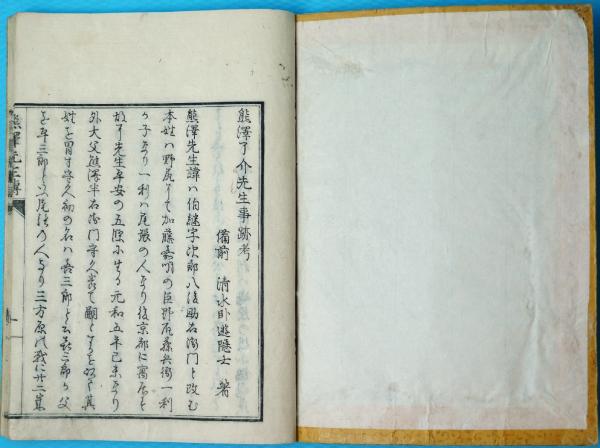 熊澤了介先生事跡考
備前 清水臥遊隠士 著
熊澤先生諱ハ伯継字次郎八後助右衛門ト改む
本姓ハ野尻にて加藤嘉明の臣野尻藤兵衛一利
か子なり一利ハ尾張の人なり後京都に寓居を
故に先生平安の五條に生る元和五年己未なり
外大父熊澤半右衛門守久養て嗣とすを以て其
姓を冒す守久初の名ハ喜三郎と云喜三郎か父
を平三郎と云尾張の人なり三方原の戦に廿二歳
熊澤先生傳
一